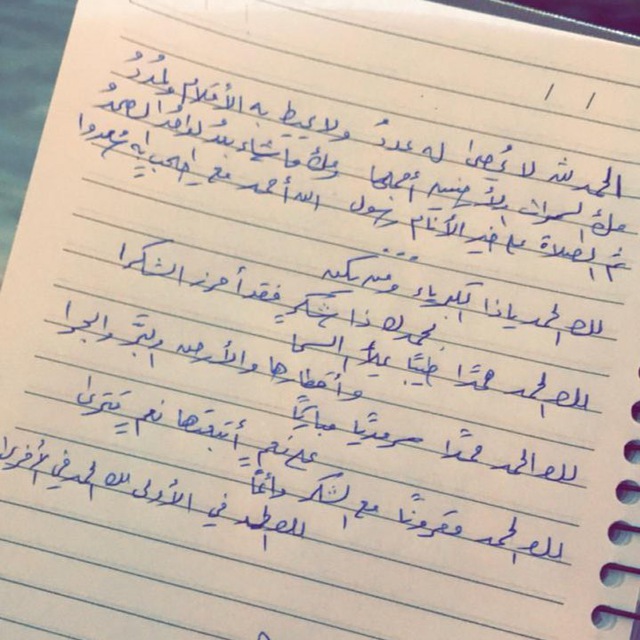 الحمد لله لا يُحصى له عددُ ولا يحيط به الأقلام والمُدَدُ
ملك السموات والأرضين أجمعها وملك ما شاء بعدُ الواحد الصمدُ
ثم الصلاة على خير الأنام رسول الله أحمد مع صحب به سُعدوا
...
لك الحمد يا ذا الكبرياء ومن يكن
بحمدك ذا شكرٍ فقد أحرز الشكرا
لك الحمد حمدًا طيبًا يملأ السما
وأقطارها والأرض والبرَّ والبحرا
لك الحمد حمدًا سرمديًا مباركًا
على نعمٍ أتبعتها نعم تترى
لك الحمد مقرونًا مع الشكر دائمًا
لك الحمد في الأولى لك الحمد في الأخرى